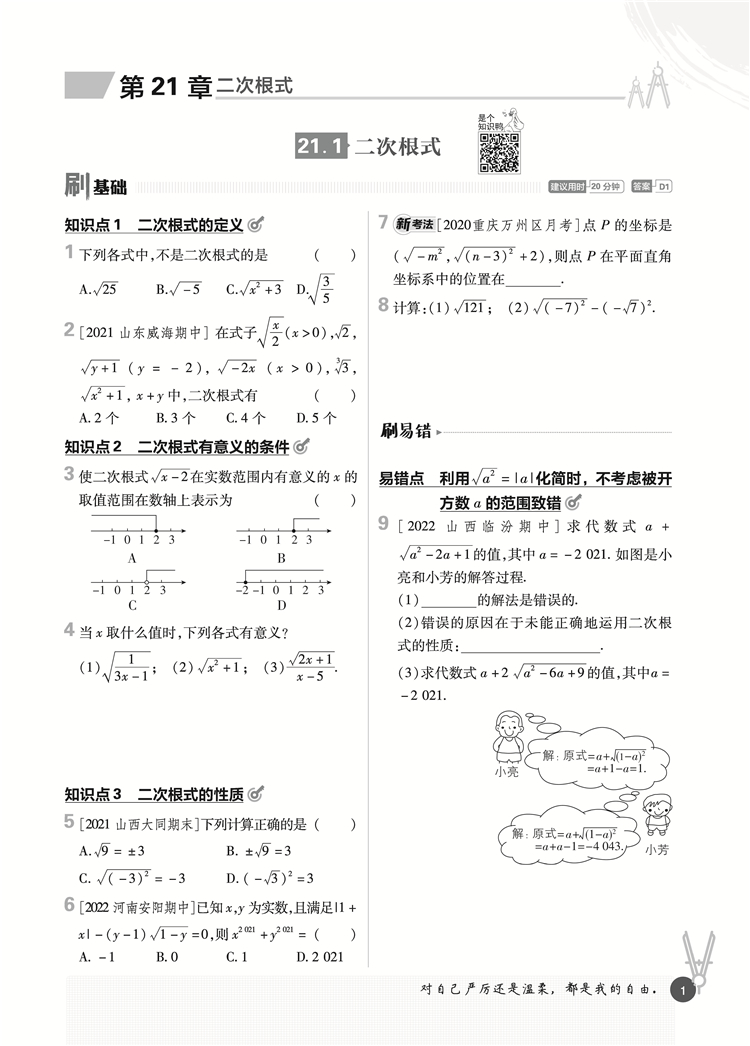 第 21 章 二次根式
21.1 二次根式
是个
知识鸭
刷 基础
建议用时 20 分钟 答案 D1
知识点 1 二次根式的定义
1 下列各式中,不是二次根式的是 ( )
A.√25 B.√-5 C.√x²+3 D.√3/5
2 [2021 山东威海期中] 在式子√x/2(x>0),√2,
√y+1 (y=-2), √-2x (x>0), ³√3,
√x²+1, x+y 中,二次根式有 ( )
A. 2 个 B. 3 个 C. 4 个 D. 5 个
知识点 2 二次根式有意义的条件
3 使二次根式√x-2在实数范围内有意义的 x 的
取值范围在数轴上表示为 ( )
-1 0 1 2 3 -1 0 1 2 3
A B
-1 0 1 2 3 -2 -1 0 1 2 3
C D
4 当 x 取什么值时,下列各式有意义?
(1)√1/(3x-1); (2)√x²+1; (3)√2x+1/(x-5).
知识点 3 二次根式的性质
5 [2021 山西大同期末]下列计算正确的是 ( )
A.√9=±3 B. ±√9=3
C. √(-3)²=-3 D.(-√3)²=3
6 [2022 河南安阳期中]已知 x,y 为实数,且满足|1+
x|-(y-1)√1-y=0,则 x²⁰²¹+y²⁰²¹= ( )
A. -1 B. 0 C. 1 D. 2 021
7 新考法 [2020重庆万州区月考]点 P 的坐标是
(√-m²,√(n-3)²+2),则点 P 在平面直角
坐标系中的位置在________.
8 计算:(1)√121; (2)√(-7)²-(-√7)².
刷易错
易错点 利用√a²=|a|化简时,不考虑被开
方数 a 的范围致错
9 [2022 山西临汾期中]求代数式 a+
√a²-2a+1的值,其中 a=-2 021. 如图是小
亮和小芳的解答过程.
(1)________的解法是错误的.
(2)错误的原因在于未能正确地运用二次根
式的性质:____________________.
(3)求代数式 a+2√a²-6a+9的值,其中a=
-2 021.
解: 原式=a+√(1-a)²
=a+1-a=1.
小亮
解: 原式=a+√(1-a)²
=a+a-1=-4 043.
小芳
对自己严厉还是温柔,都是我的自由。 1